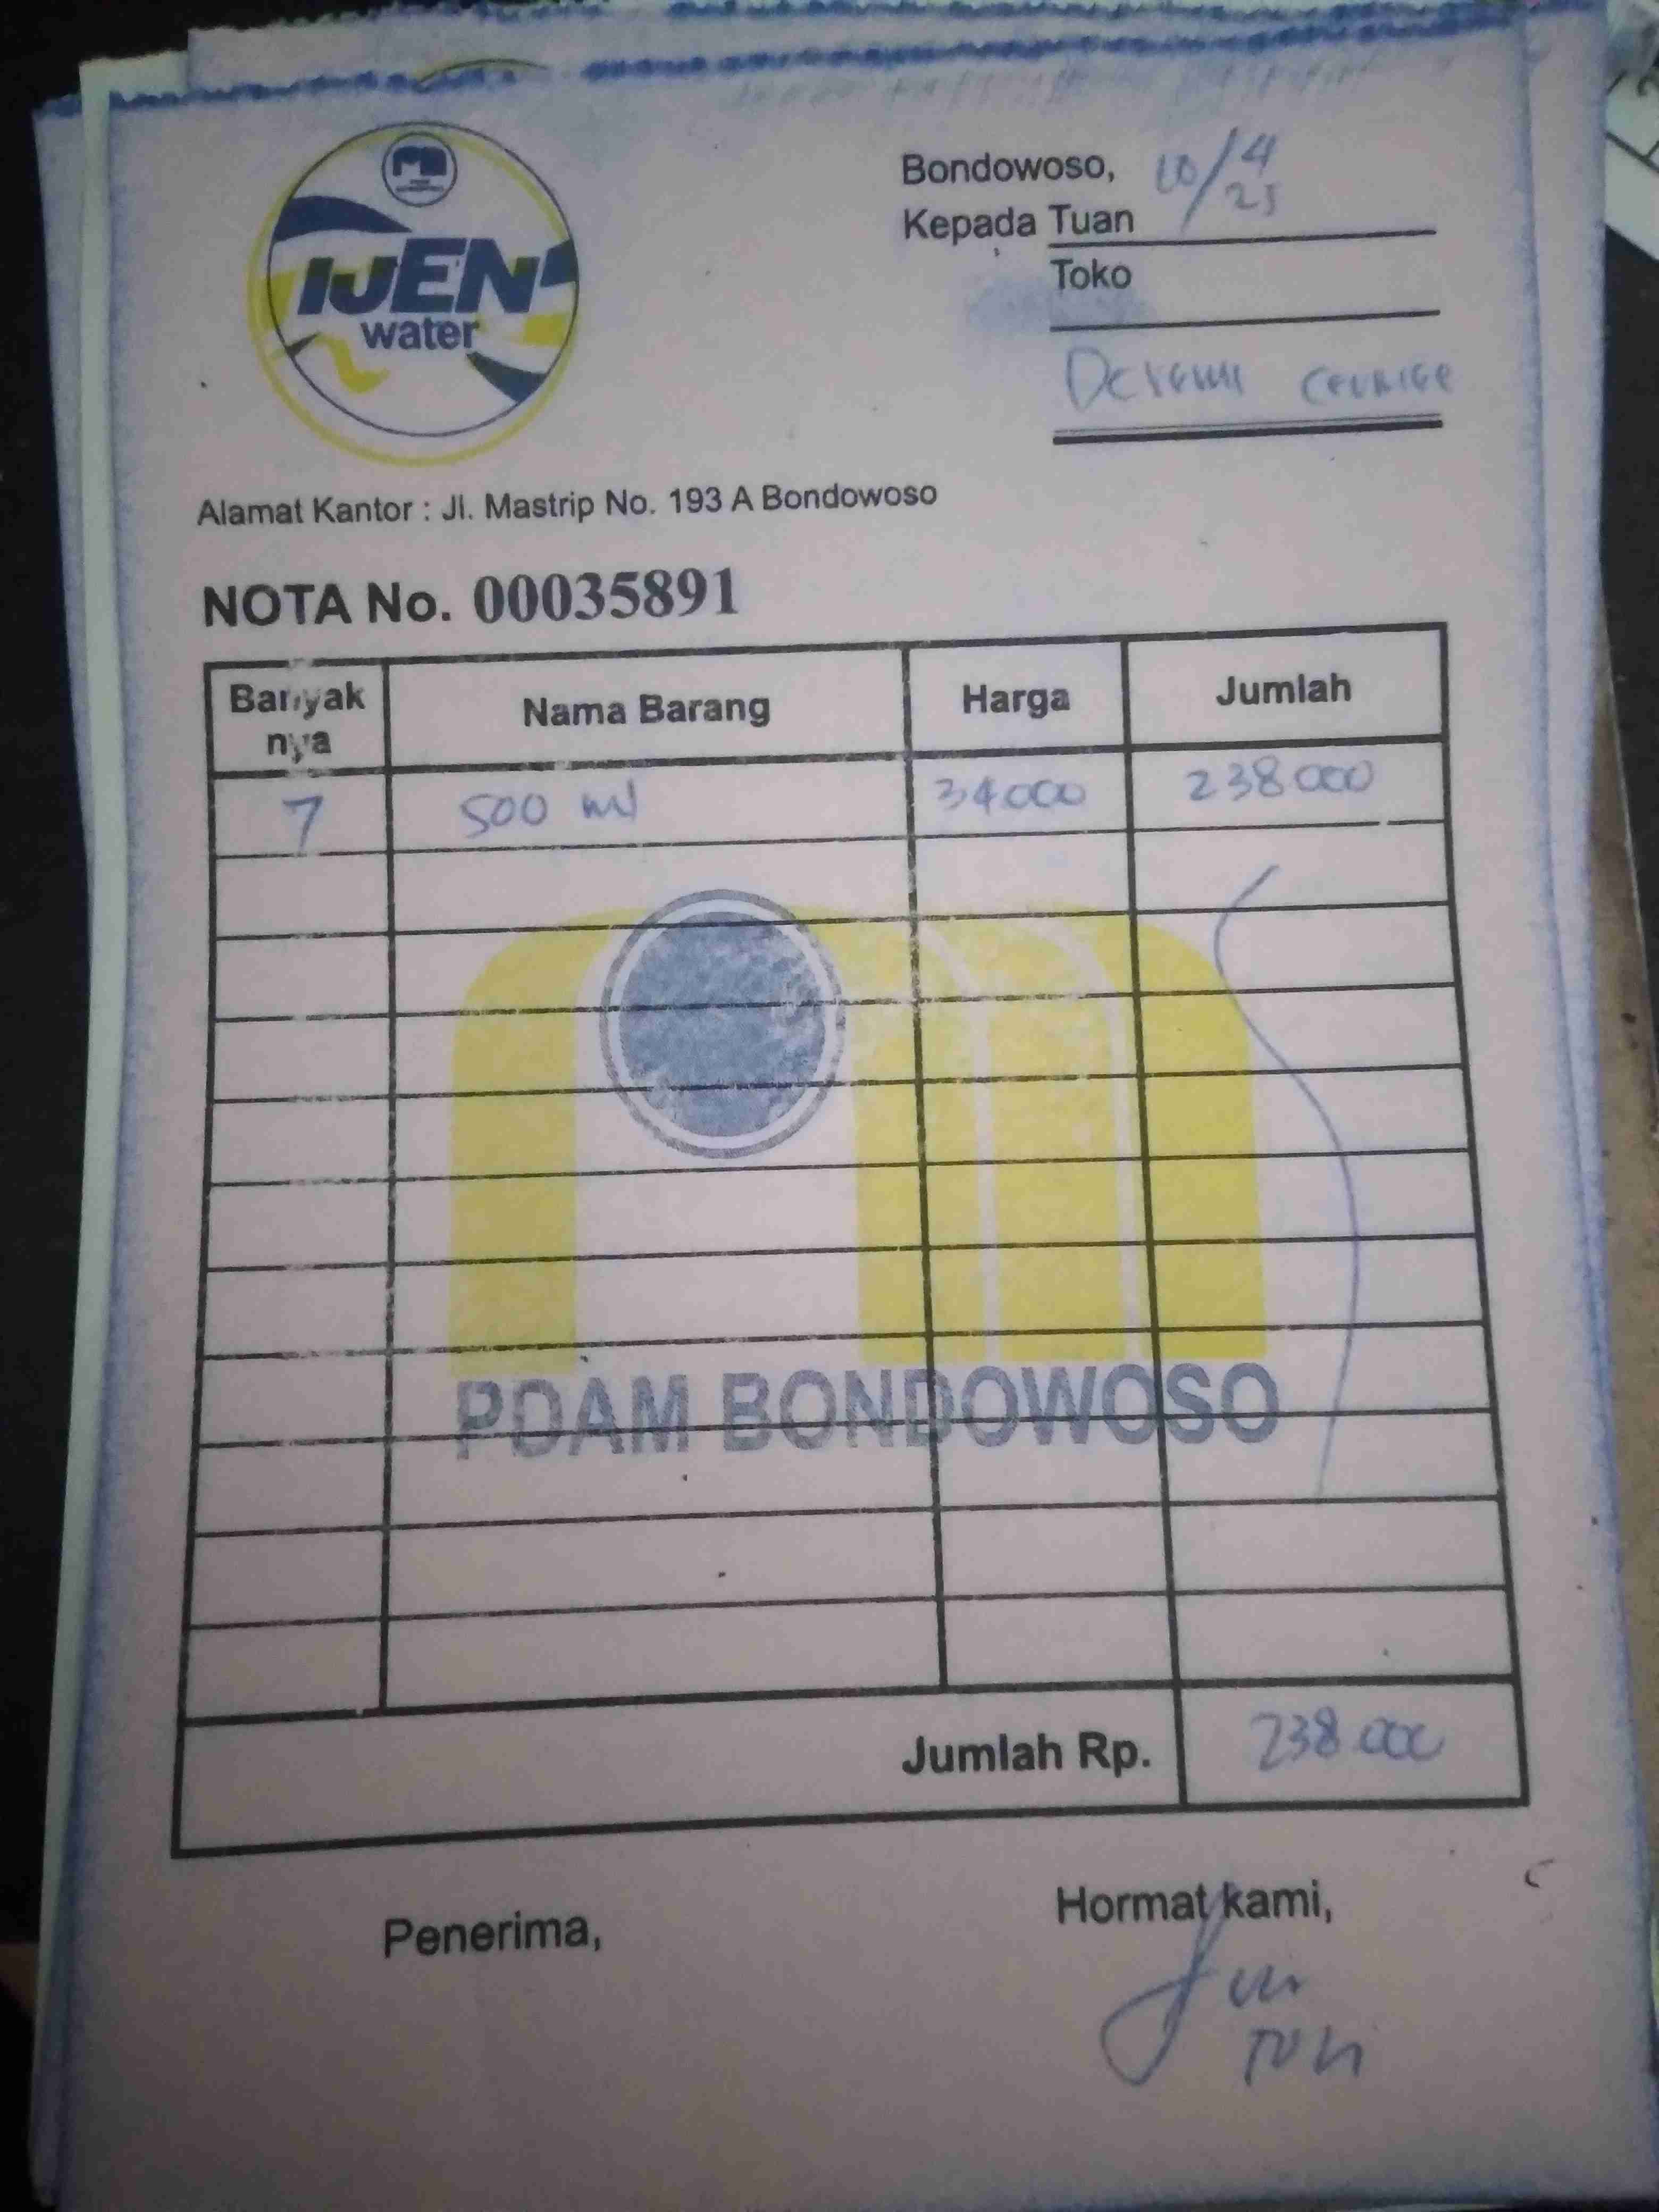 IJEN
water
Bondowoso, 10/4 25
Kepada Tuan
Toko
Alamat Kantor : Jl. Mastrip No. 193 A Bondowoso
NOTA No. 00035891
Banyak nya Nama Barang Harga Jumlah
7 500 ml 34000 238000
PDAM BONDOWOSO
Jumlah Rp. 238.000
Penerima, Hormat kami,